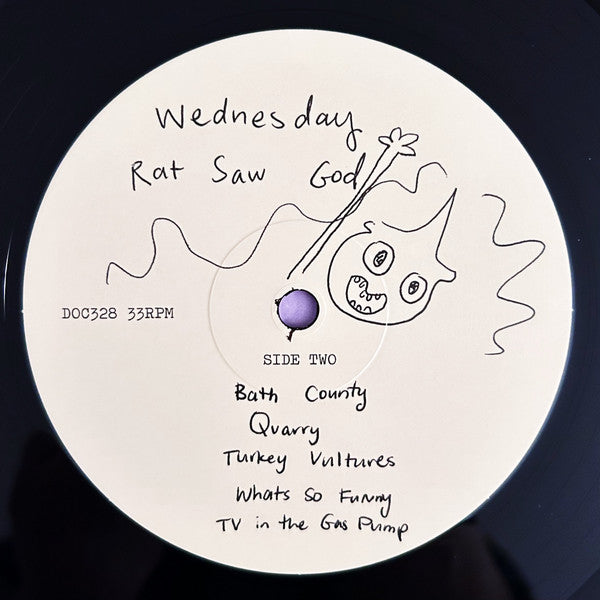 Wednesday
Rat Saw God
DOC328 33RPM
SIDE TWO
Bath County
Quarry
Turkey Vultures
Whats So Funny
TV in the Gas Pump